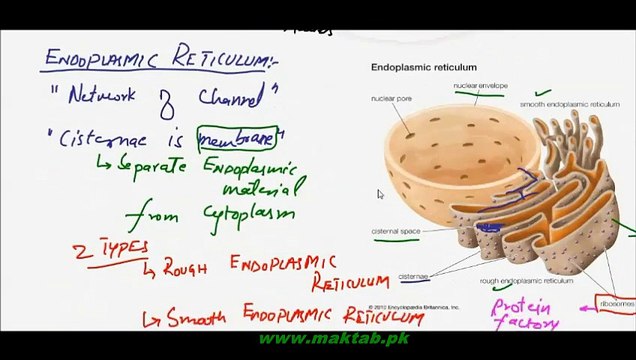 ENDOPLASMIC RETICULUM:-
"Network of Channel"
"Cisternae is membrane"
↳ Separate Endoplasmic
material
from Cytoplasm
2 TYPES
↳ ROUGH ENDOPLASMIC
RETICULUM
↳ Smooth ENDOPLASMIC RETICULUM
Endoplasmic reticulum
nuclear envelope
smooth endoplasmic reticulum
nuclear pore
cisternal space
cisternae
rough endoplasmic reticulum
ribosomes
© 2010 Encyclopædia Britannica, Inc.
Protein
factory
www.maktab.pk